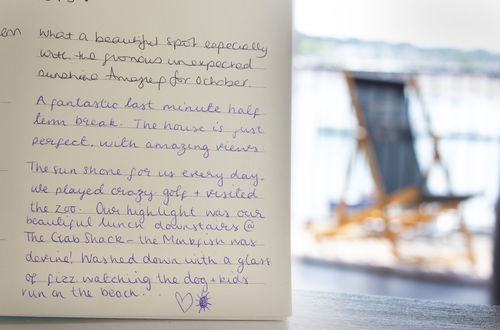 en What a beautiful spot especially
with the glorious unexpected
sunshine Amazing for October.
A fantastic last minute half
term break. The house is just
perfect, with amazing views.
The sun shone for us every day.
we played crazy golf + visited
the zoo. Our highlight was our
beautiful lunch downstairs @
The Crab Shack - the Monkfish was
devine! Washed down with a glass
of fizz watching the dog + kids
run on the beach..